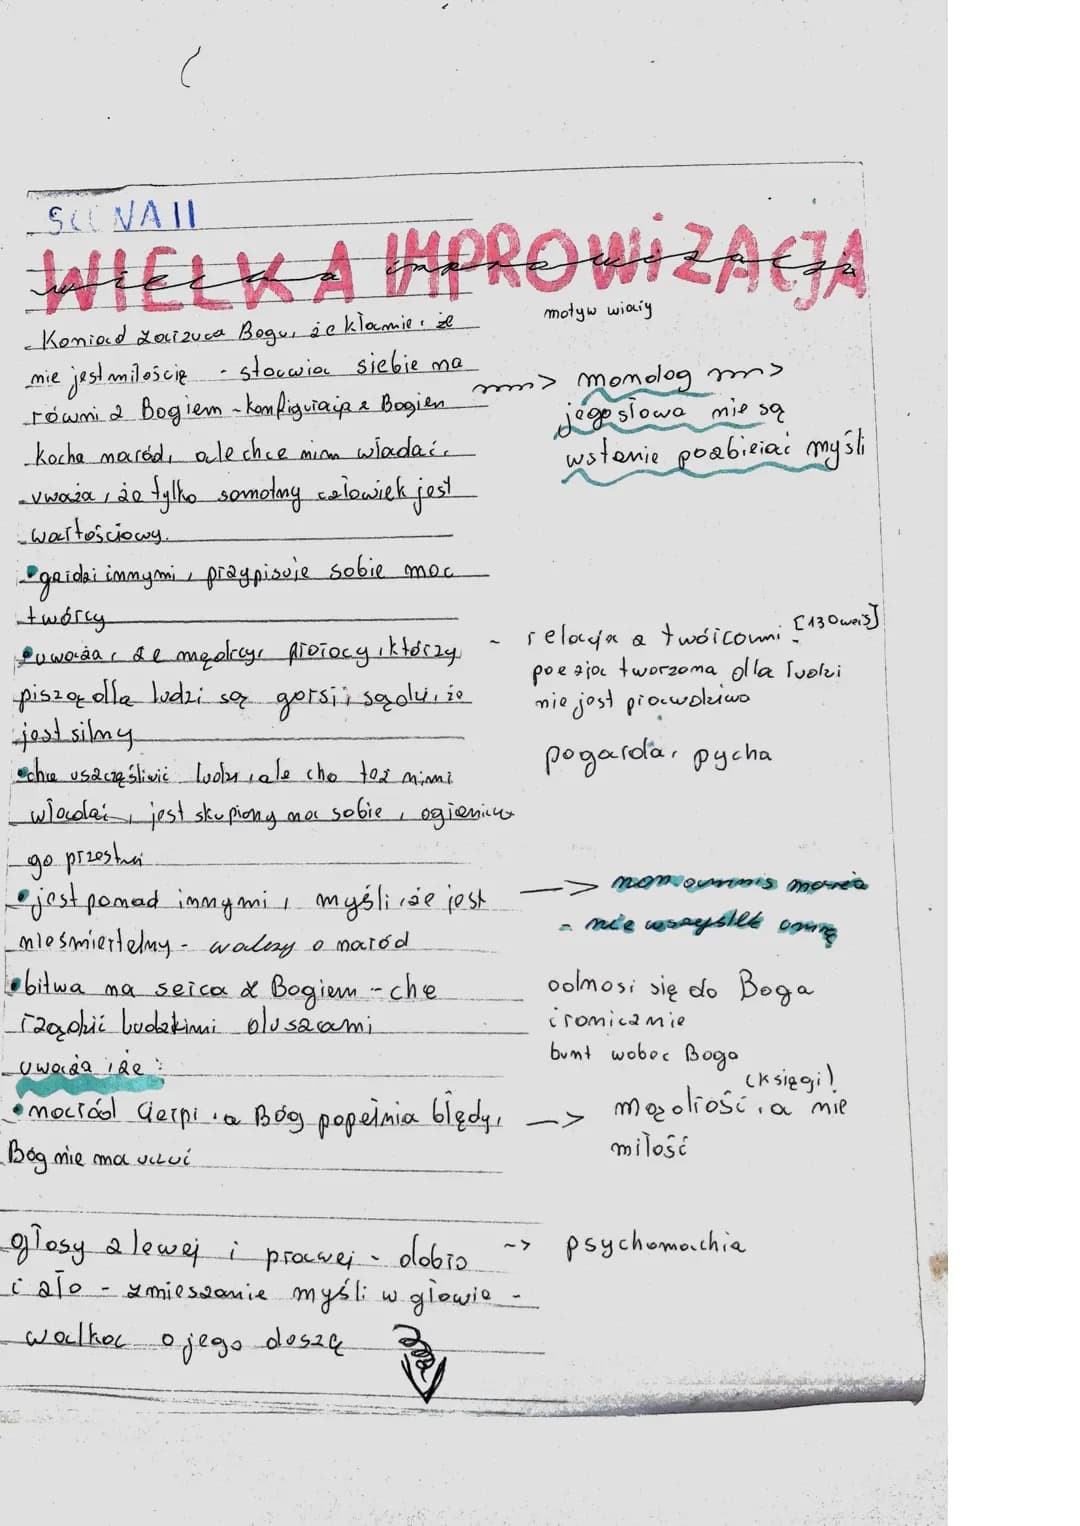 SCENA II
WIELKA IMPROWIZACJA
wielka improwizacja
motyw wiary
Konrad zarzuca Bogu, że kłamie, że
nie jest miłością - stawia siebie na
równi z Bogiem - konfiguracja z Bogiem
kocha naród, ale chce nim władać.
uważa, że tylko samotny człowiek jest
wartościowy.
~~> monolog ~~>
jego słowa nie są
w stanie pozbierać myśli
• gardzi innymi, przypisuje sobie moc
twórcy
• uważa, że mędrcy, prorocy, którzy
piszą dla ludzi są gorsi, sądzi, że
jest silny
- relacja z twórcami [130 wers]
poezja tworzona dla ludzi
nie jest prawdziwa
pogarda, pycha
• chce uszczęśliwić ludzi, ale chce też nimi
władać, jest skupiony na sobie, ogranicza
go przestrzeń
• jest ponad innymi, myśli, że jest
nieśmiertelny - walczy o naród
—> non omnis moria
- nie wszystek umrę
• bitwa na serca z Bogiem - chce
rządzić ludzkimi duszami
odnosi się do Boga
ironicznie
bunt wobec Boga
uważa, że:
• naród cierpi, a Bóg popełnia błędy,
Bóg nie ma uczuć
(księgi)
—> mądrość, a nie
miłość
głosy z lewej i prawej - dobro
i zło - zmieszanie myśli w głowie -
walka o jego duszę
-> psychomachia